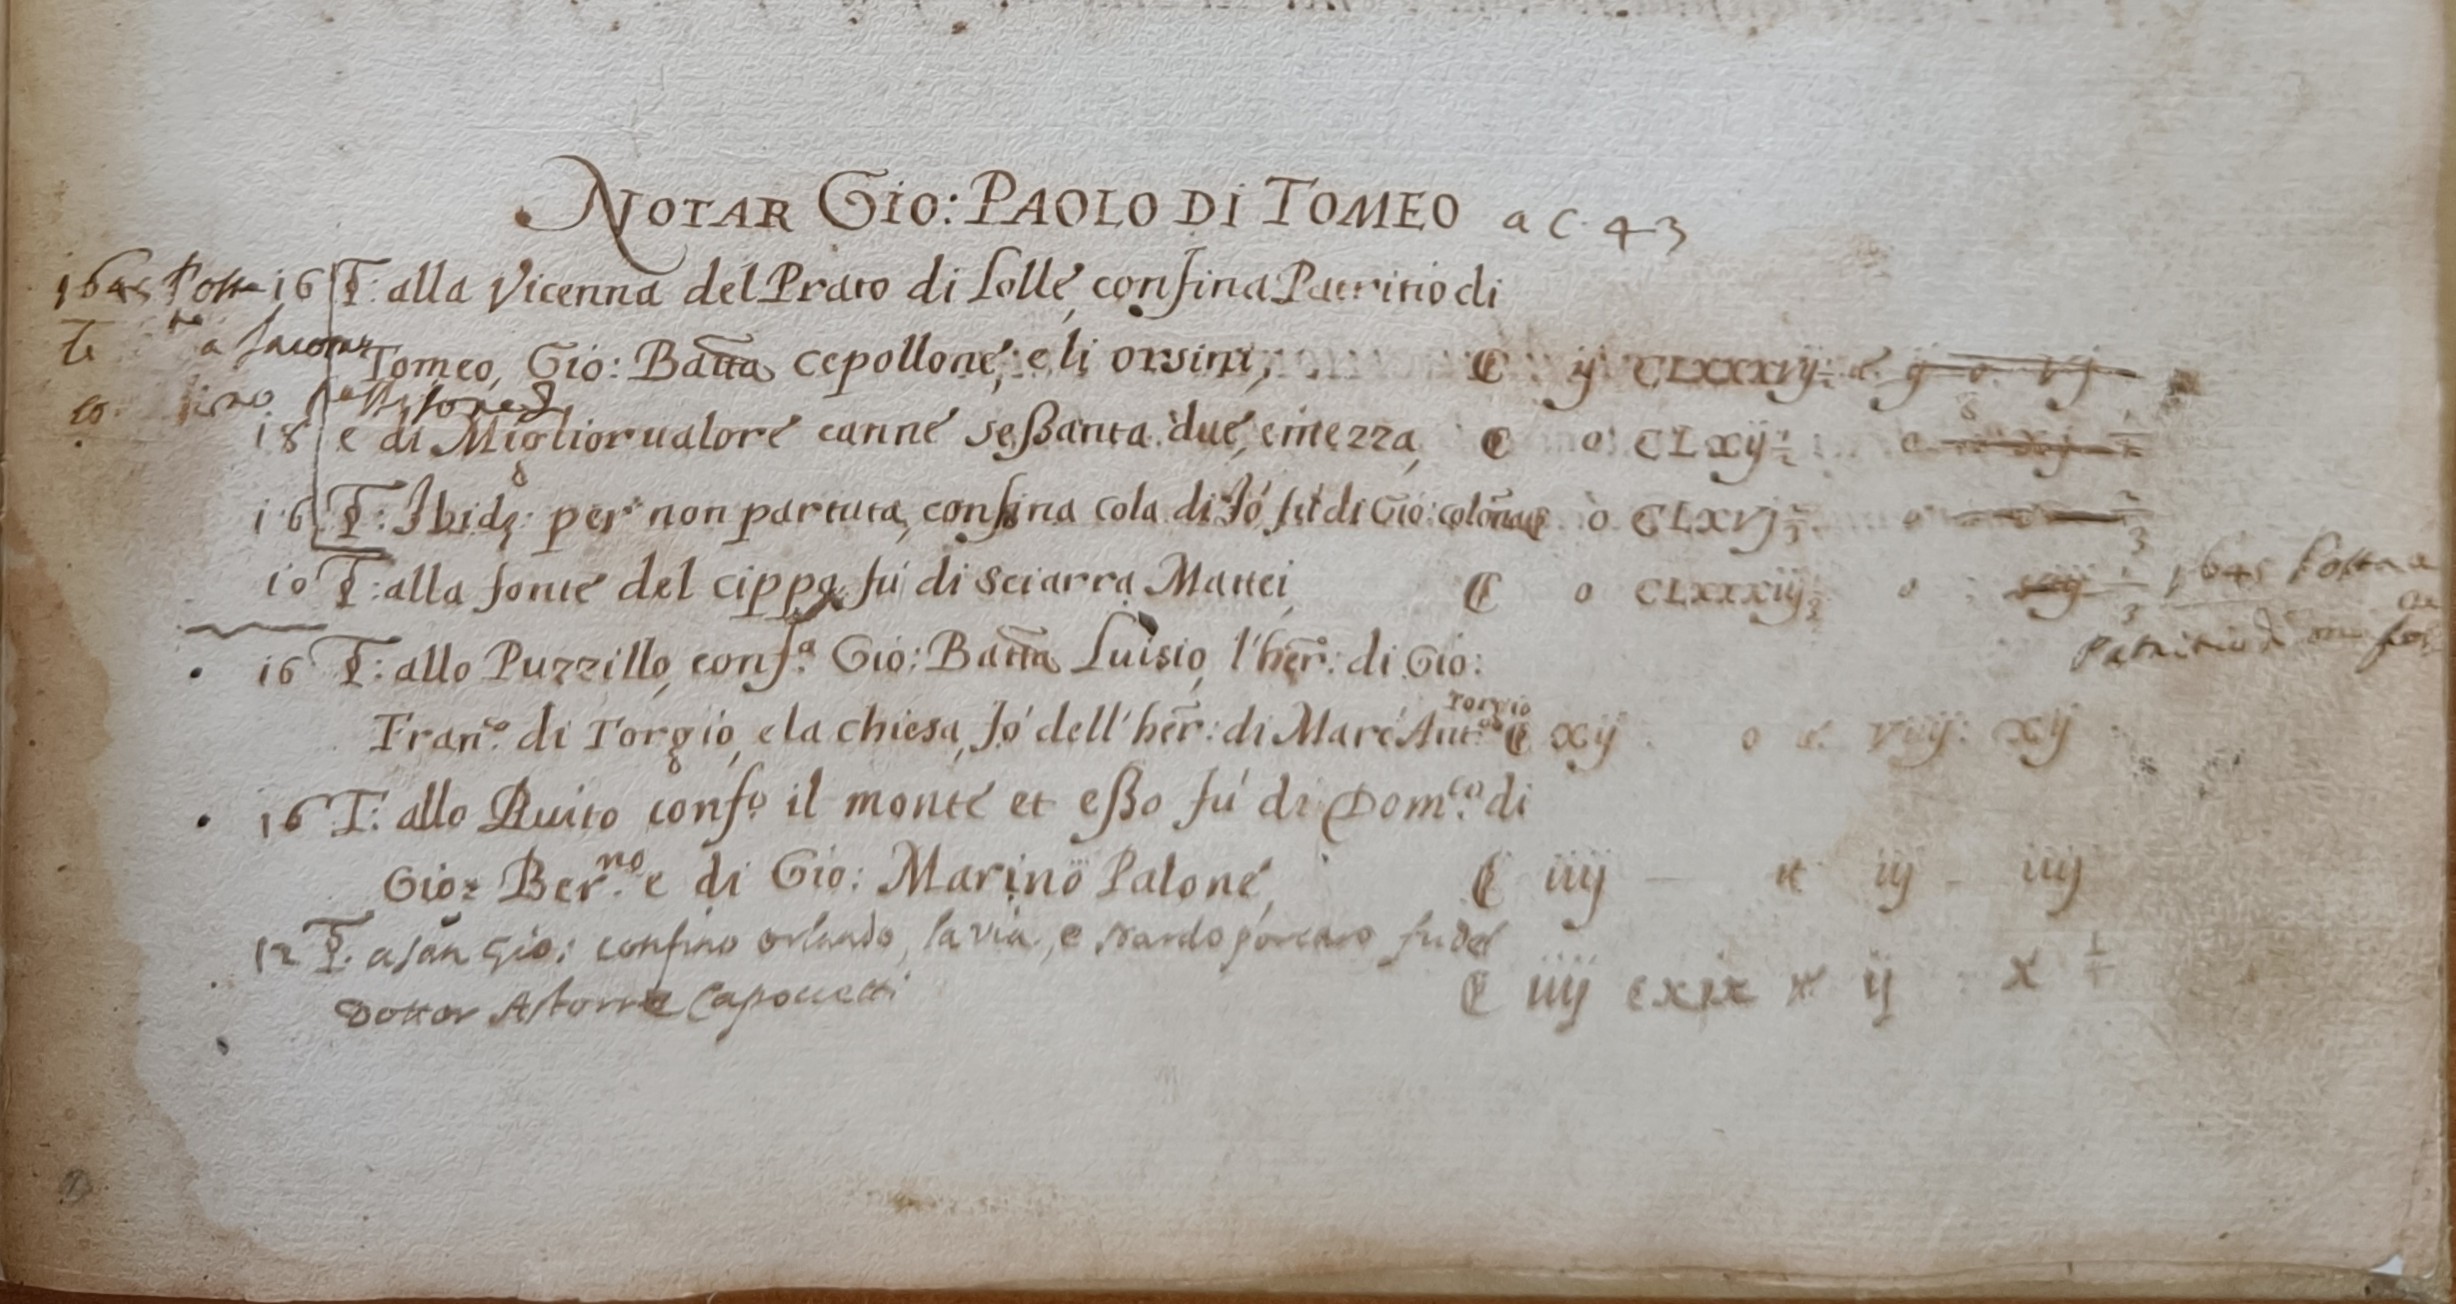 NOTAR GIO: PAOLO DI TOMEO a C. 43
1645 Posta 16 T: alla Vicenna del Prato di Lolle, confina Patritio di
Tomeo, Gio: Batta Cepollone, e li orsini, C ij CLXXXVij
18 e di Miglior ualore canne seßanta due, e mezza, C o CLXij ½
16 T: Ibid. per non partuta, confina cola di Jo' fu di Gio: colonna C o CLXVj
10 T: alla fonte del cippo fu di Sciarra Mattei, C o CLXXXiij
1645 Posta a
Patritio
16 T: allo Puzzillo, conf.a Gio: Batta Luisio, l'her: di Gio:
Torgio
Fran.co di Torgio, e la chiesa, Jo' dell' her: di Marc' Ant.o C xij o viiij: xij
16 T: allo Ruito conf.o il monte et eßo fu di Dom.co di
Gio: Ber.no e di Gio: Marino Palone, C iiij iij iiij
12 T. a san Gio: confino orlando, la via, e nardo porcaro fu del
Dottor Astorre Capoccetti C iiij cxix ij x